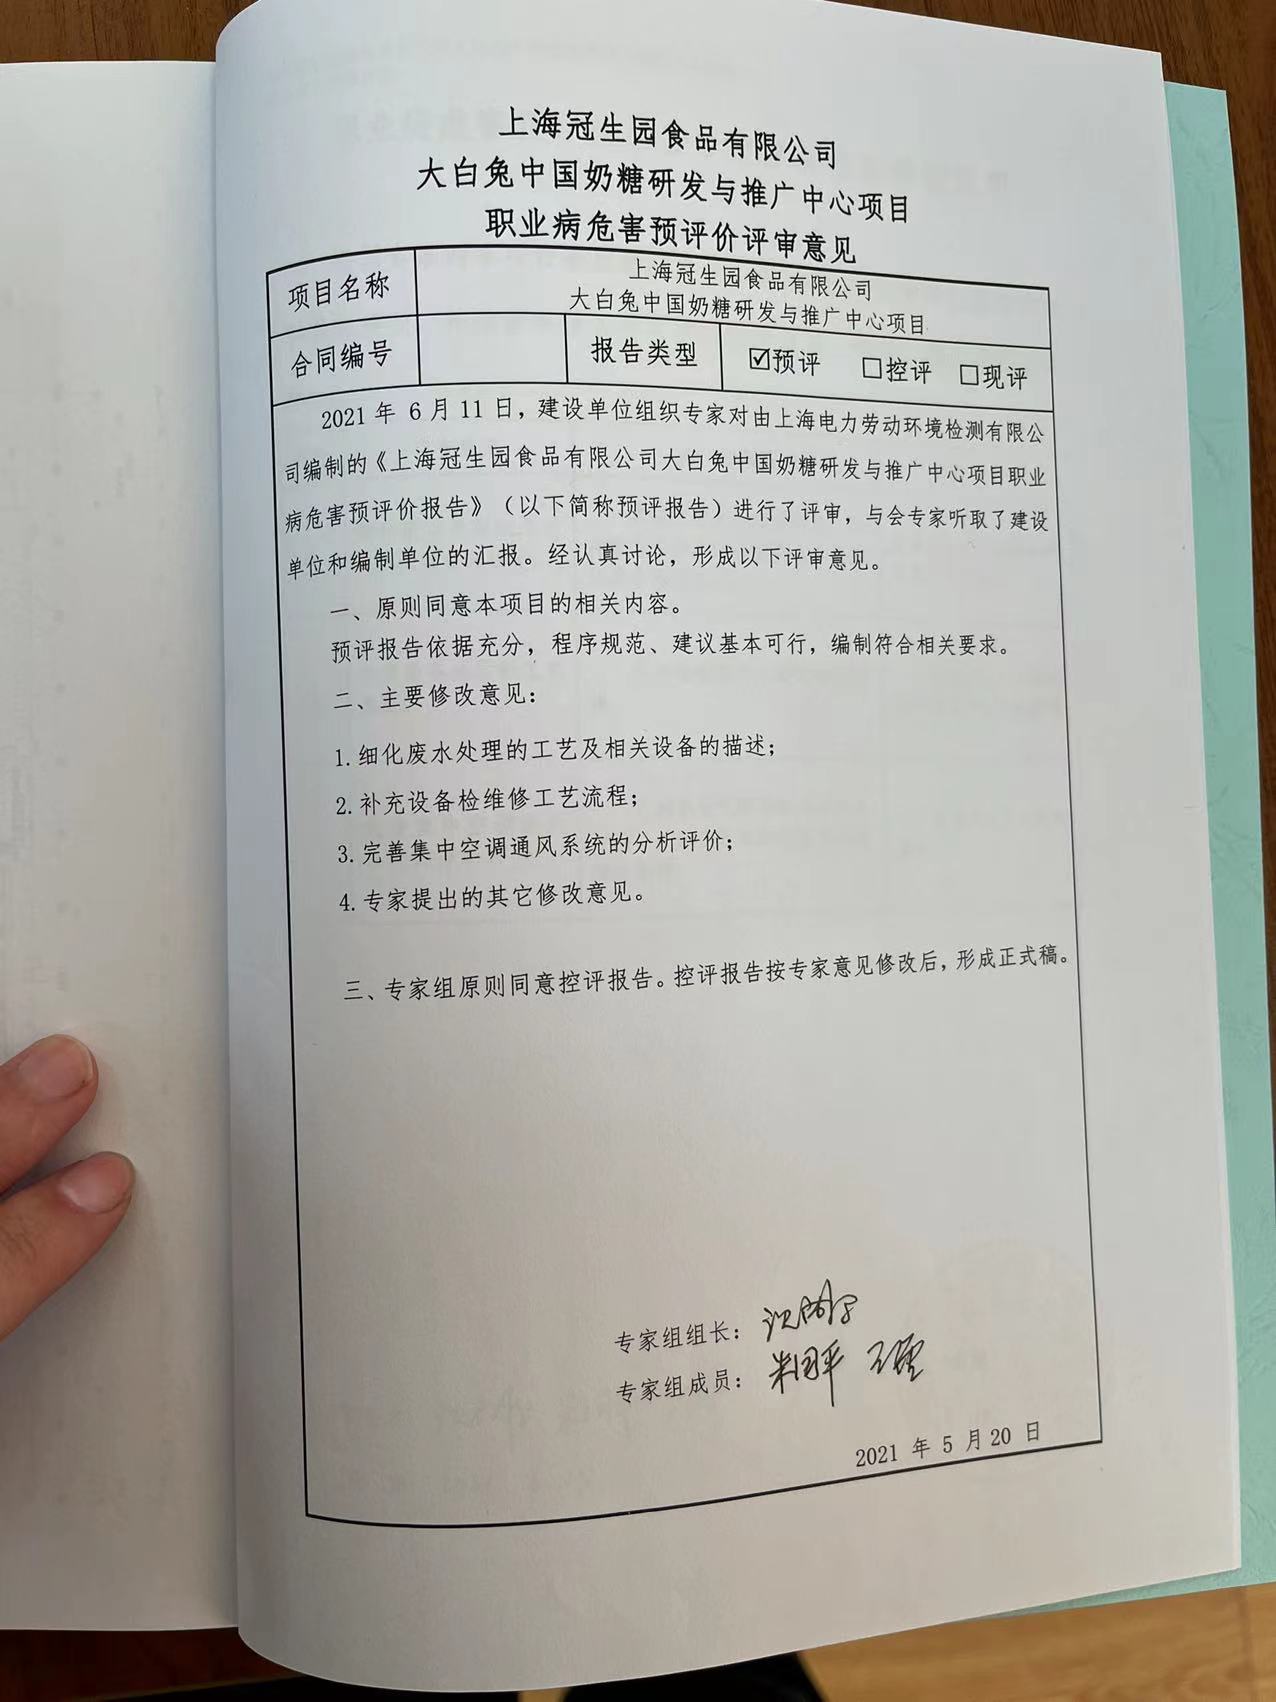 上海冠生园食品有限公司
大白兔中国奶糖研发与推广中心项目
职业病危害预评价评审意见
项目名称
上海冠生园食品有限公司
大白兔中国奶糖研发与推广中心项目
合同编号 报告类型 ☑预评 □控评 □现评
2021 年 6 月 11 日，建设单位组织专家对由上海电力劳动环境检测有限公
司编制的《上海冠生园食品有限公司大白兔中国奶糖研发与推广中心项目职业
病危害预评价报告》（以下简称预评报告）进行了评审，与会专家听取了建设
单位和编制单位的汇报。经认真讨论，形成以下评审意见。
一、原则同意本项目的相关内容。
预评报告依据充分，程序规范、建议基本可行，编制符合相关要求。
二、主要修改意见：
1.细化废水处理的工艺及相关设备的描述；
2.补充设备检维修工艺流程；
3.完善集中空调通风系统的分析评价；
4.专家提出的其它修改意见。
三、专家组原则同意控评报告。控评报告按专家意见修改后，形成正式稿。
专家组组长：
专家组成员：
2021 年 5 月 20 日